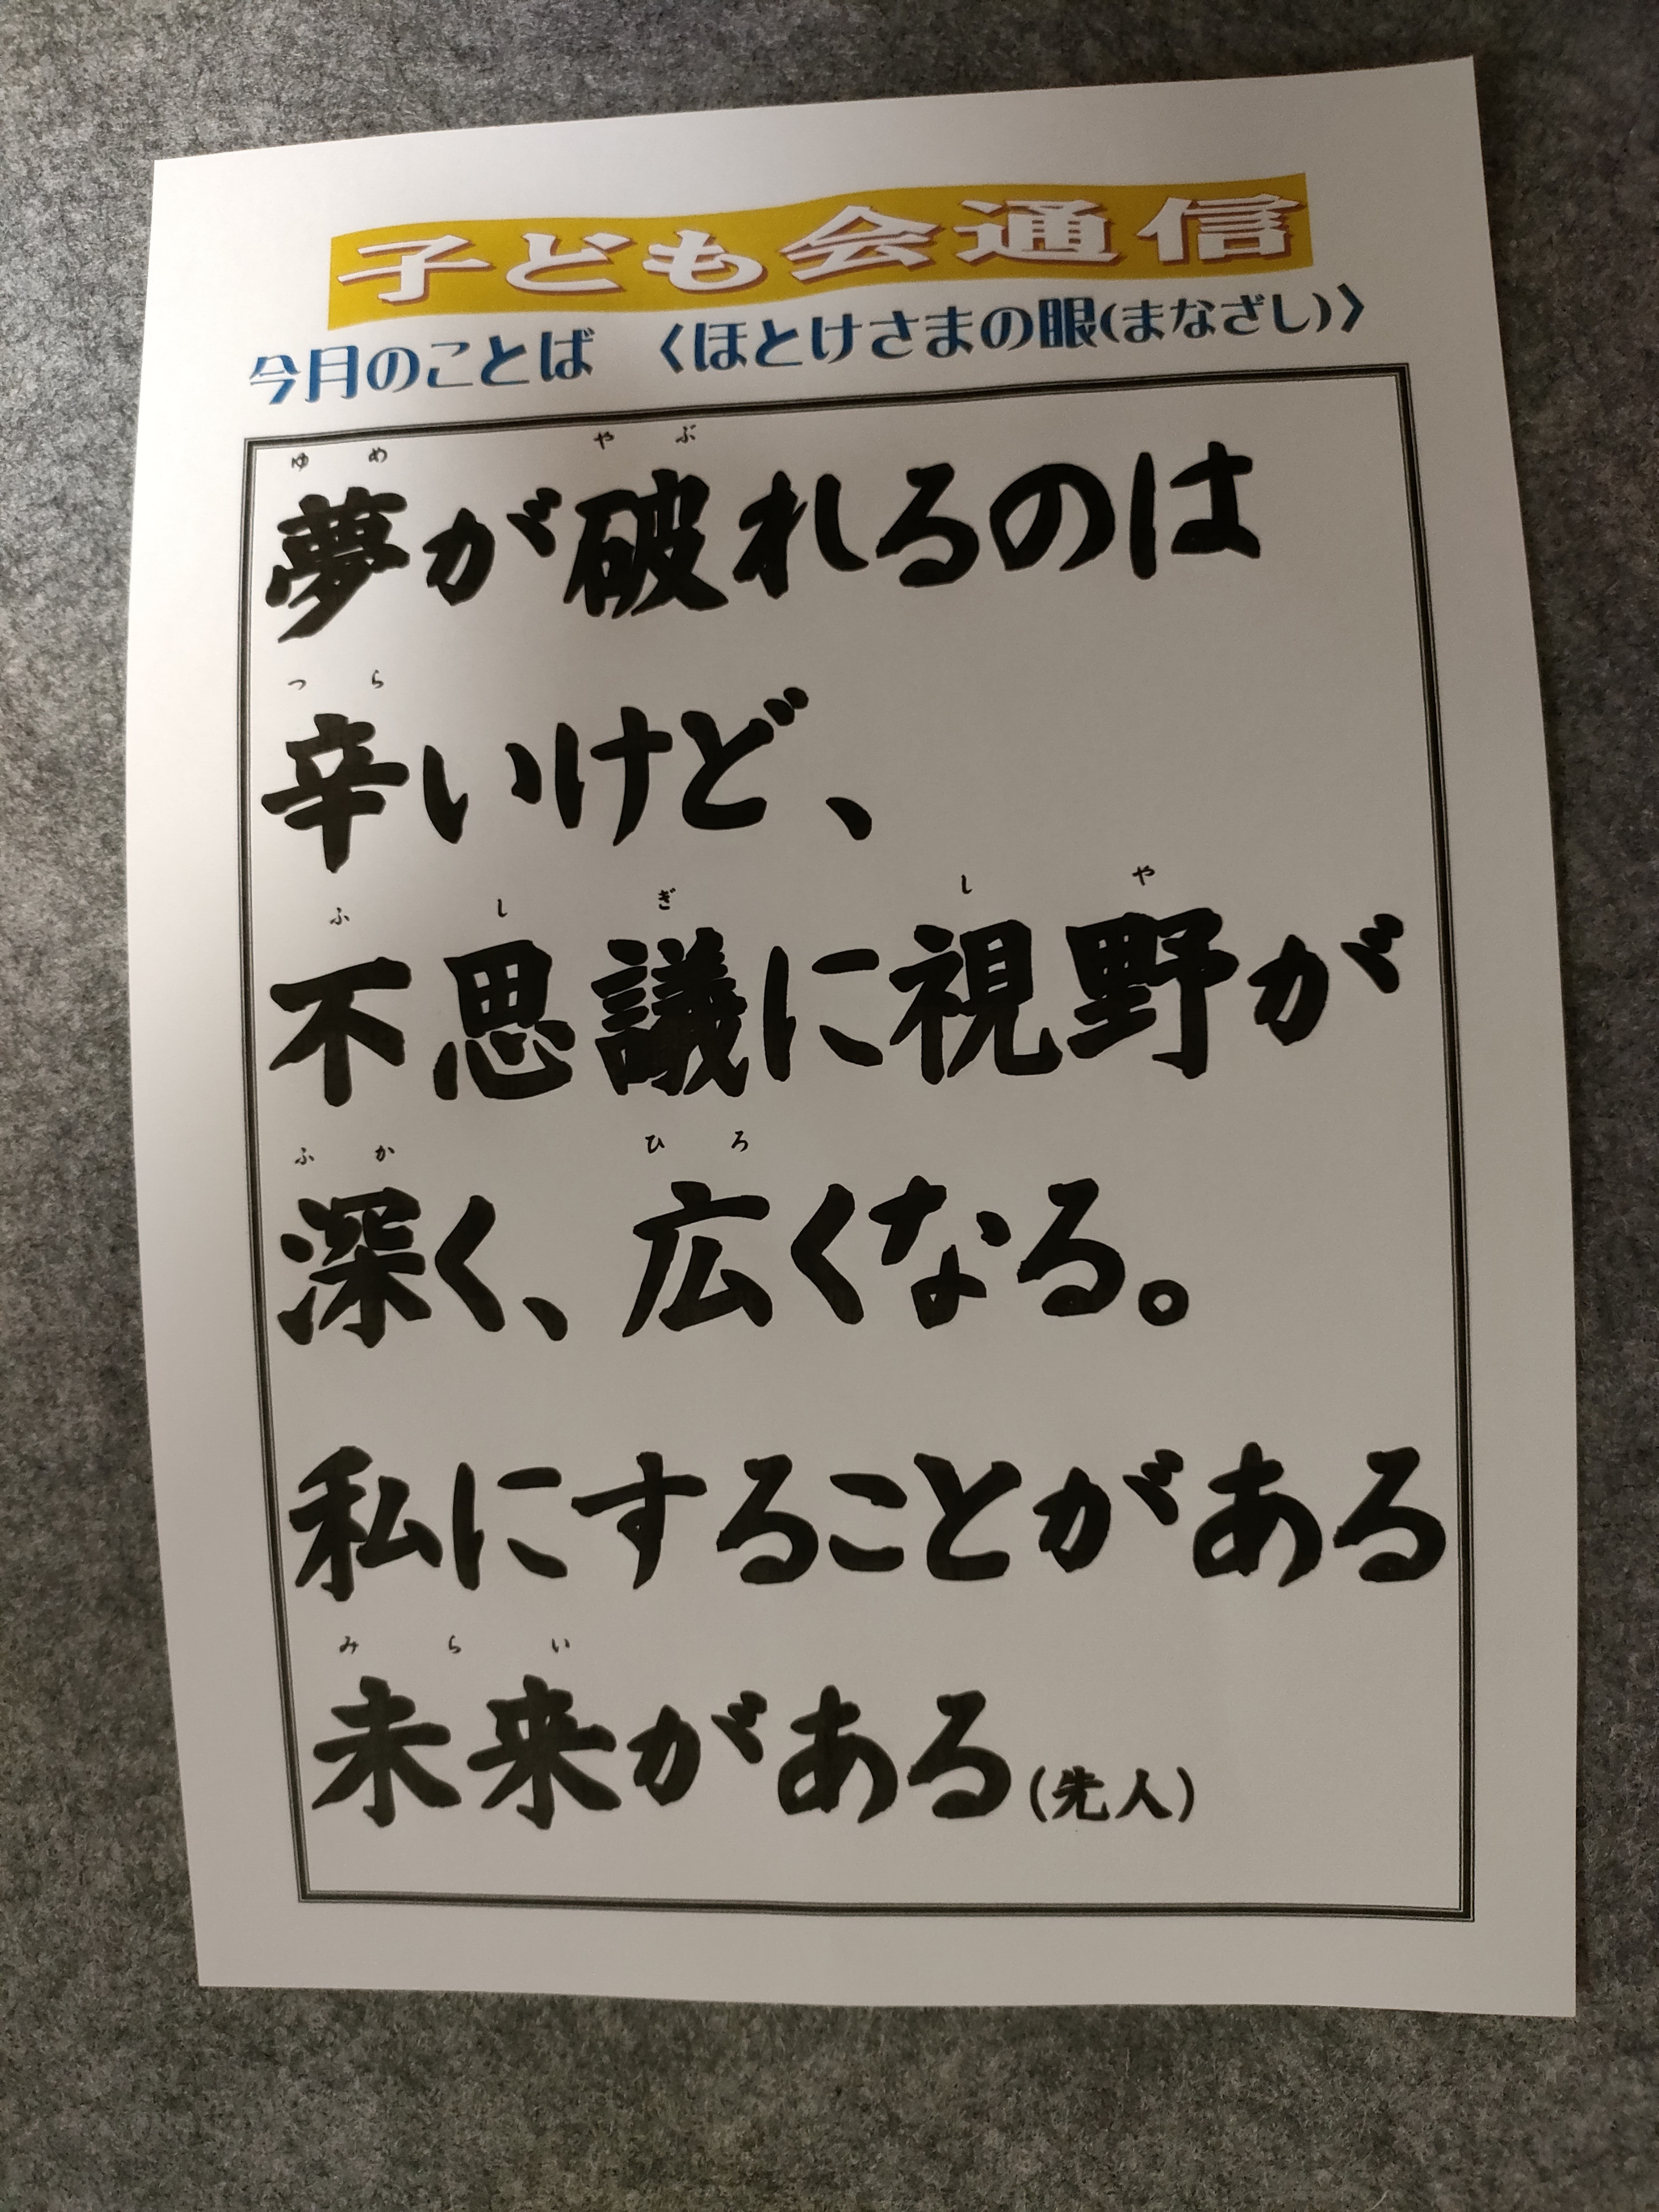 子ども会通信
今月のことば 〈ほとけさまの眼(まなざし)〉
ゆめ やぶ
夢が破れるのは
つら
辛いけど、
ふしぎ しや
不思議に視野が
ふか ひろ
深く、広くなる。
私にすることがある
みらい
未来がある(先人)